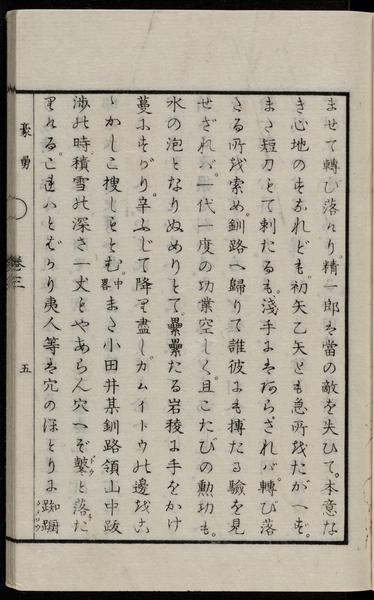 ませて轉び落たり。精一郎は當の敵を失ひて。本意な
き心地のすなれども。初矢乙矢とも急所をたがへず。
まさ短刀とて刺たるも。淺手にはあらざれバ。轉び落
さる所を索め。釧路へ歸りて誰彼にも摶たる驗を見
せざれバ。一代一度の功業空しく。且こたびの勲功も。
水の泡となりぬめりとて。纍纍たる岩稜に手をかけ
蔓にすがり。辛ふじて降り盡し。カムイトウの邊をこ
ゝかしこ捜しもとむ。中畧まさ小田井某釧路領山中跋
渉の時積雪の深さ一丈もやあらん穴へぞ鼕と落た
りける。こ はとばかり夷人等は穴のほとりに踟蹰
豪勇
卷三
五